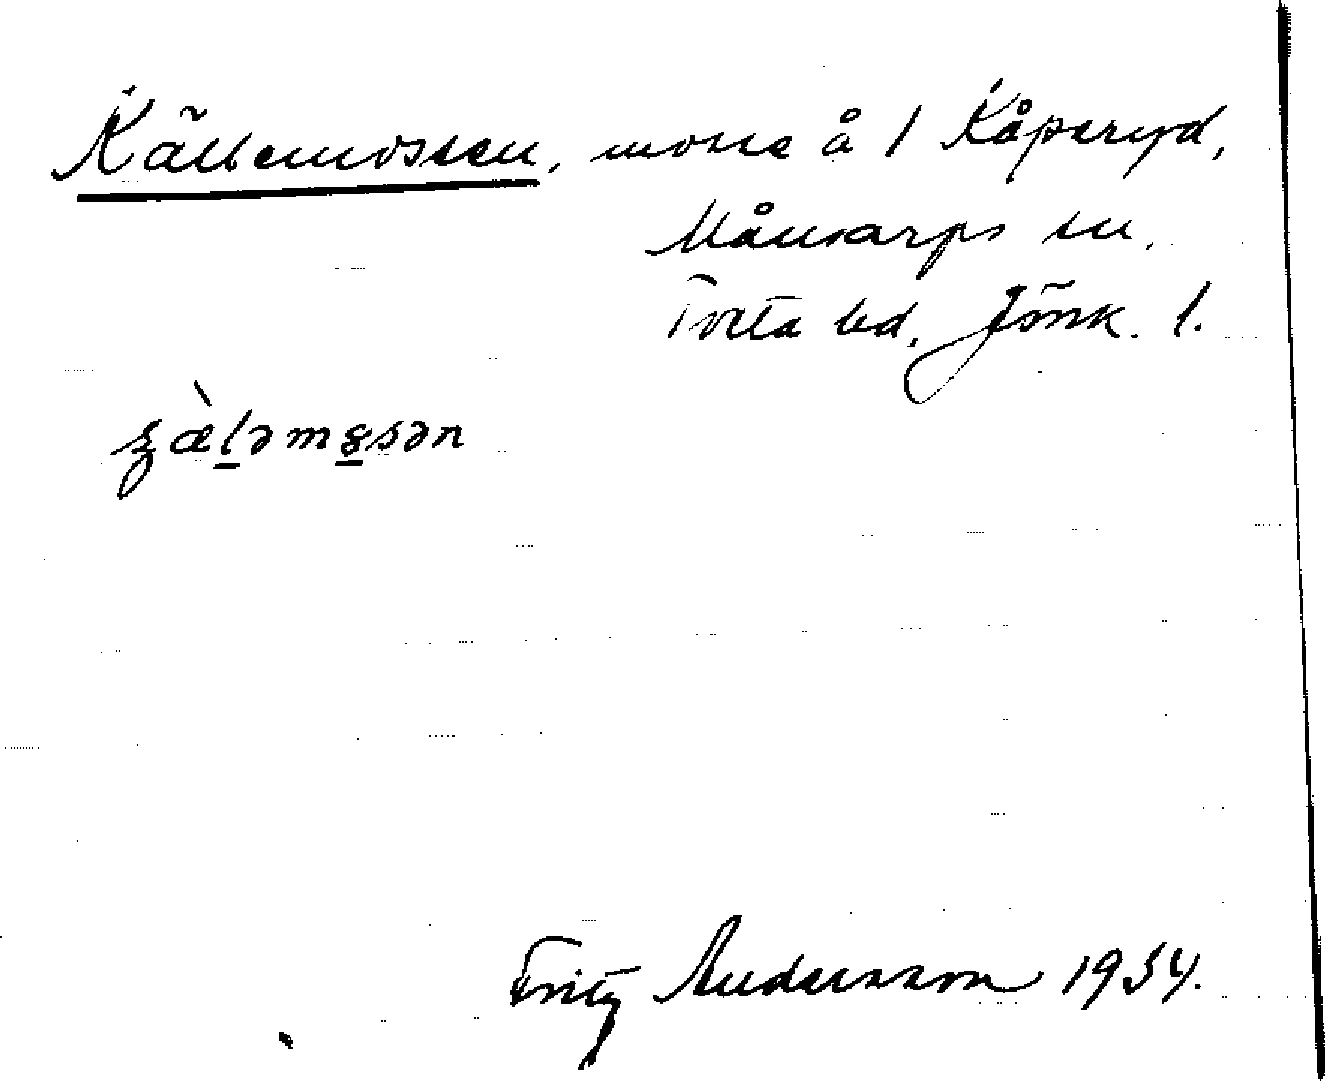 Källemossen, mosse å 1 Kåperyd,
Månsarps sn.
Tveta hd, Jönk. l.
Fritz Andersson 1934.